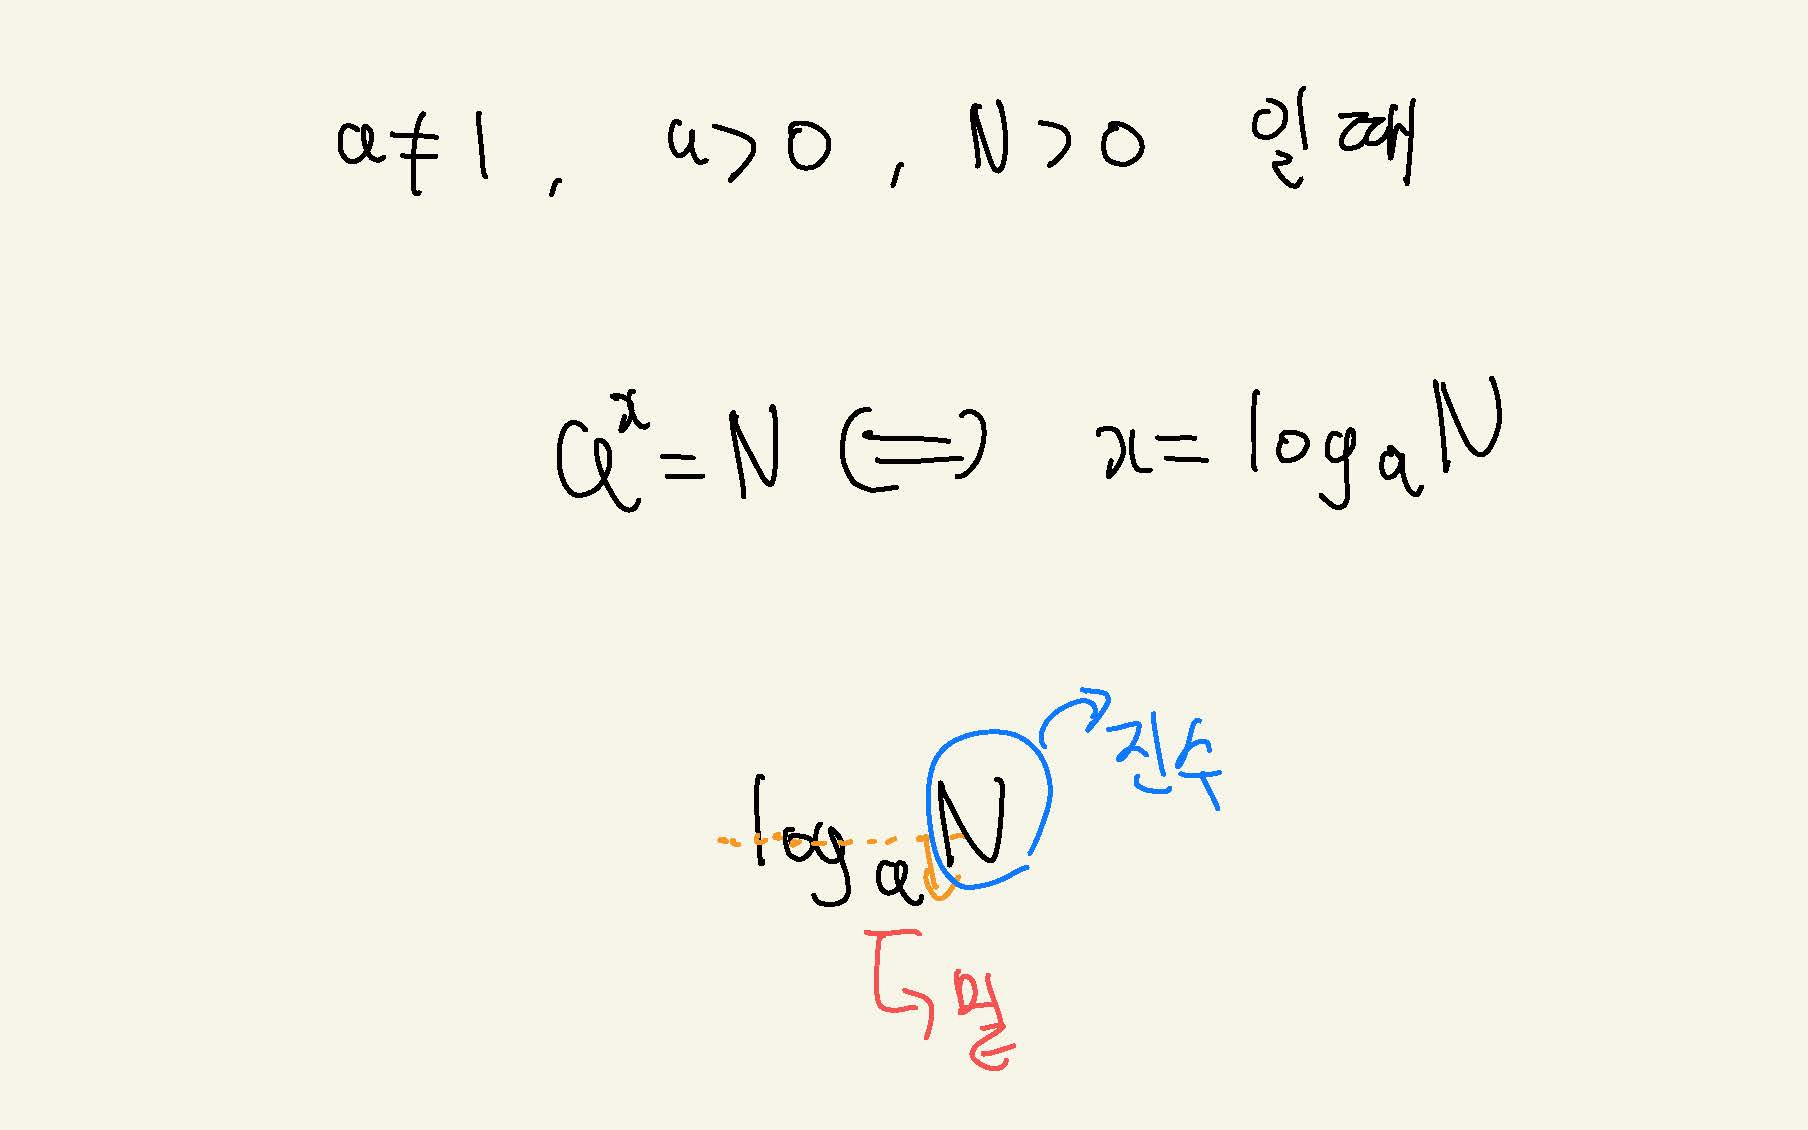 a≠1, a>0, N>0 일 때
aˣ=N ⟺ x=logₐN
진수
logₐN
밑